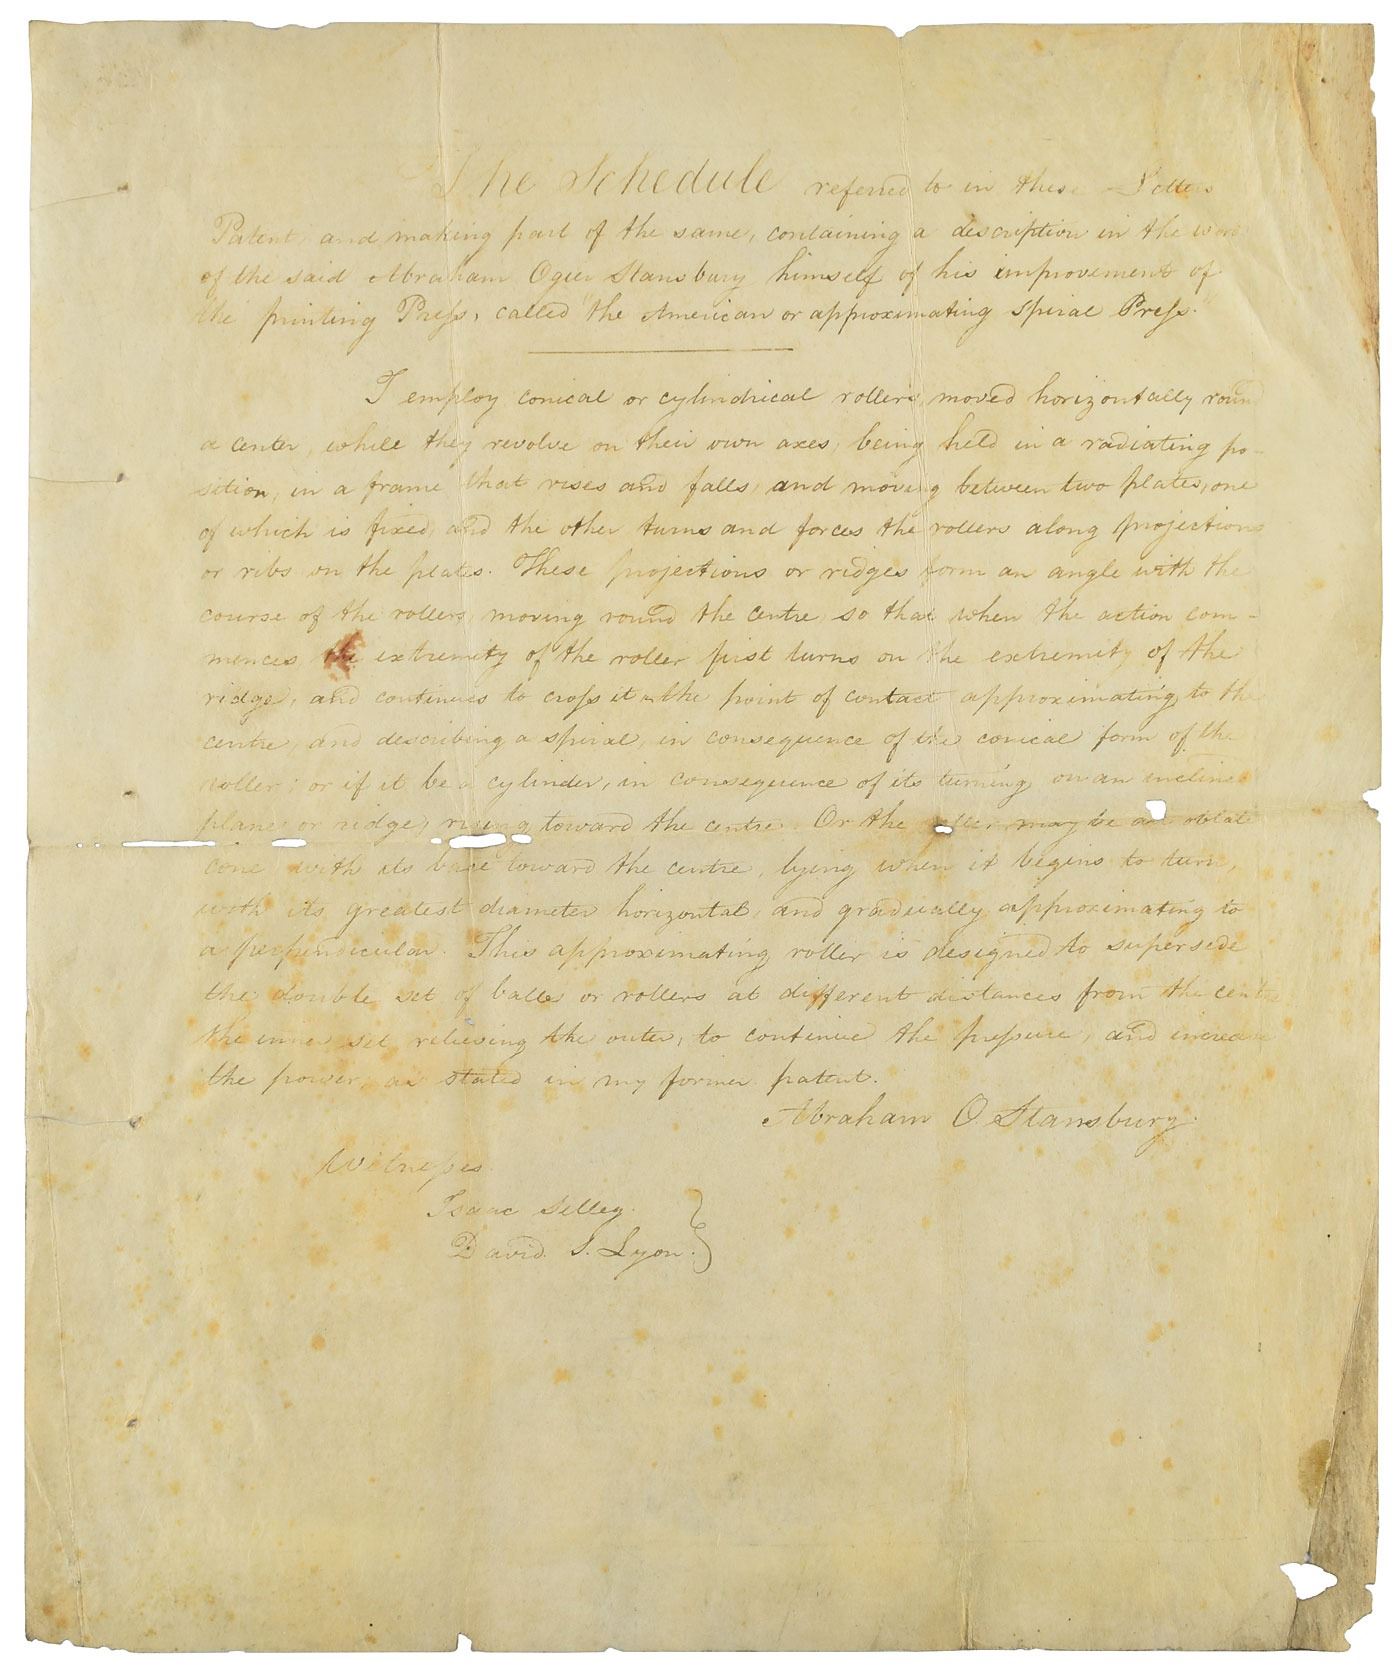 The Schedule referred to in these Letters
Patent, and making part of the same, containing a description in the words
of the said Abraham Ogier Stansbury himself of his improvement of
the printing Press, called the American or approximating Spiral Press.
I employ conical or cylindrical rollers, moved horizontally round
a center, while they revolve on their own axes, being held in a radiating po-
sition, in a frame that rises and falls, and moving between two plates, one
of which is fixed, and the other turns and forces the rollers along projections
or ribs on the plates. These projections or ridges form an angle with the
course of the rollers, moving round the centre, so that when the action com-
mences the extremity of the roller first turns on the extremity of the
ridge, and continues to cross it, the point of contact approximating to the
centre, and describing a spiral, in consequence of the conical form of the
roller; or if it be a cylinder, in consequence of its turning on an inclined
plane or ridge, rising toward the centre. Or the roller may be an oblate
cone with its base toward the centre, lying when it begins to turn,
with its greatest diameter horizontal, and gradually approximating to
a perpendicular. This approximating roller is designed to supersede
the double set of balls or rollers at different distances from the centre
the inner set relieving the outer, to continue the pressure, and increase
the power, as stated in my former patent.
Abraham O. Stansbury.
Witnesses.
Isaac Silley.
David S. Lyon.